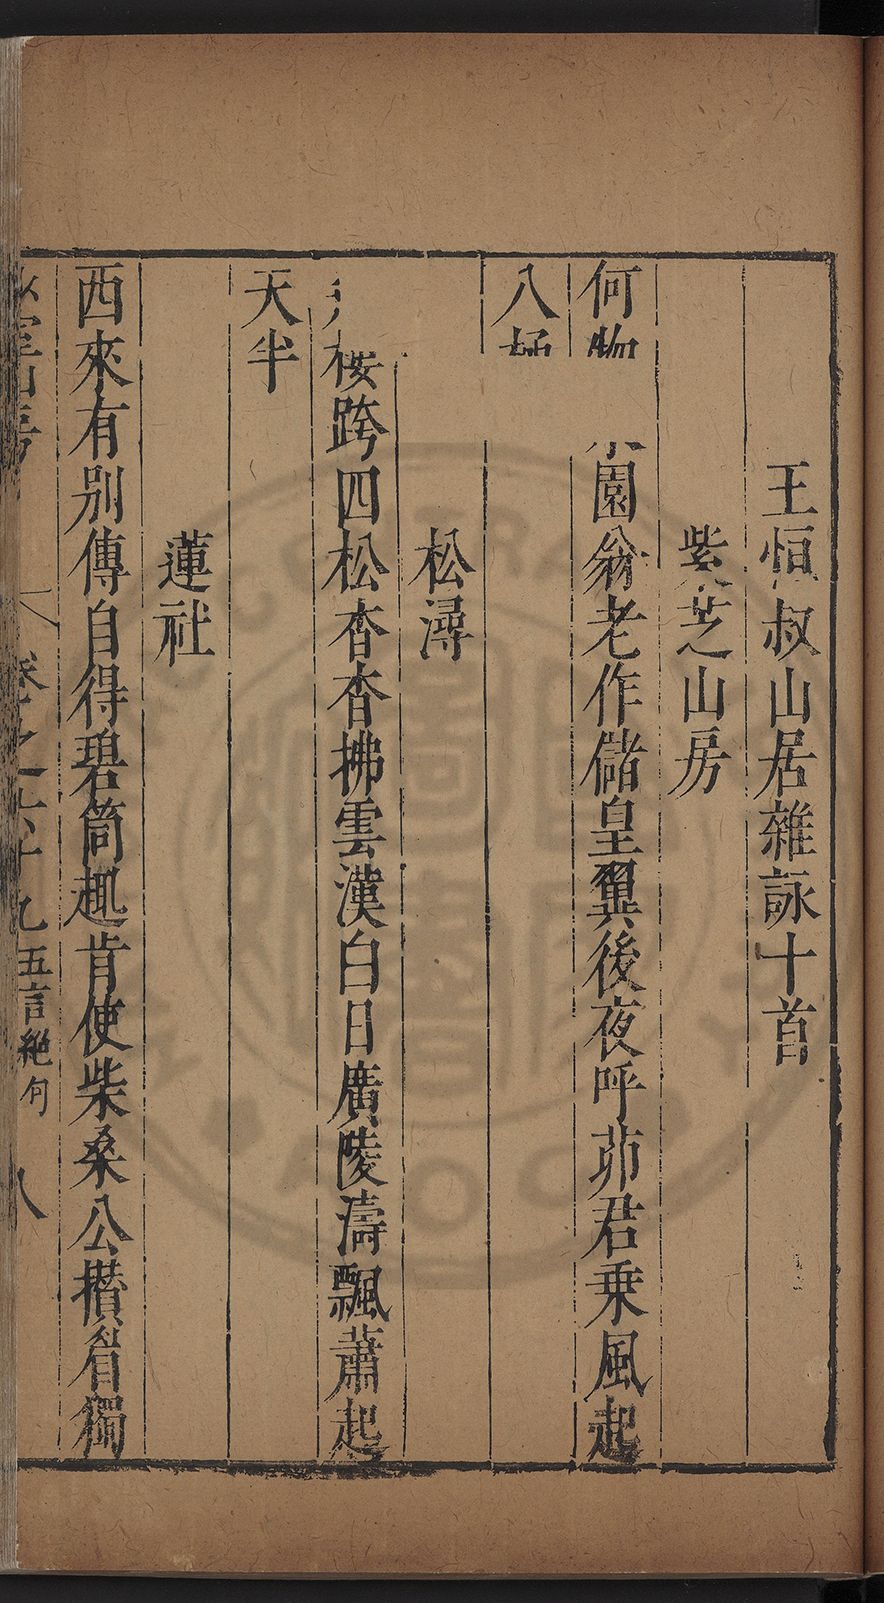 王恒叔山居雜詠十首
紫芝山房
何物園翁老作儲皇翼後夜呼茆君乗風起
八極
松濤
樓跨四松杳杳拂雲漢白日廣陵濤飄蕭起
天半
蓮社
西來有別傳自得碧筒趣肯使柴桑公攅眉獨
卷之六十九五言絶句 八